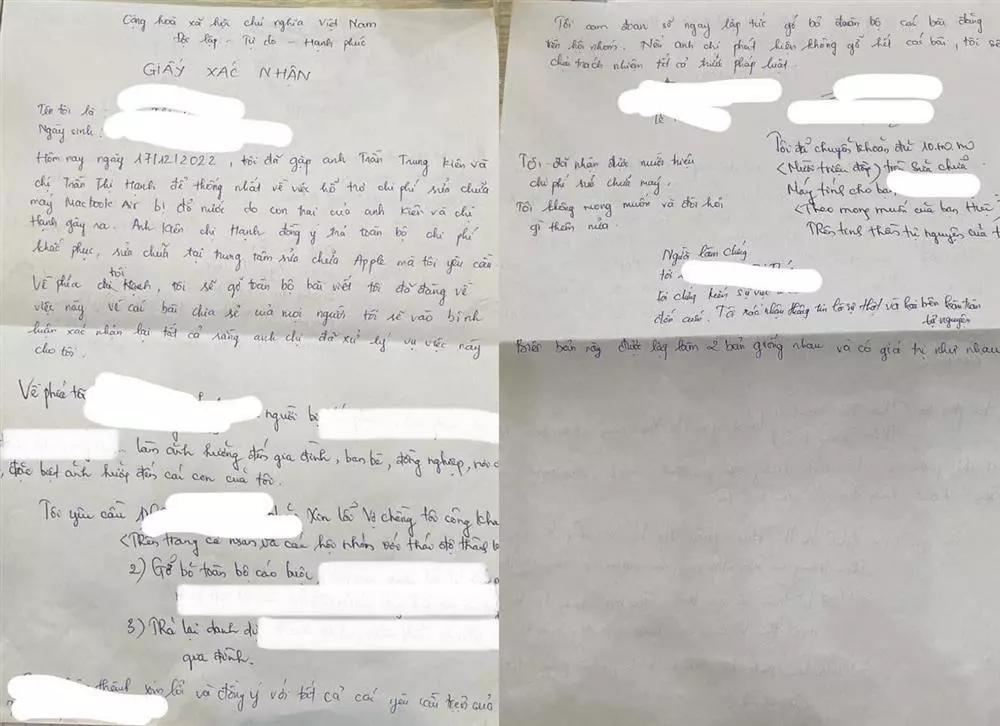 Cộng hoà xã hội chủ nghĩa Việt Nam
Độc lập - Tự do - Hạnh phúc
GIẤY XÁC NHẬN
Tên tôi là
Ngày sinh:
Hôm nay ngày 17/12/2022, tôi đã gặp anh Trần Trung Kiên và
chị Trần Thị Hạnh để thống nhất về việc hỗ trợ chi phí sửa chữa
máy Macbook Air bị đổ nước do con trai của anh Kiên và chị
Hạnh gây ra. Anh Kiên chị Hạnh đồng ý trả toàn bộ chi phí
khắc phục, sửa chữa tại trung tâm sửa chữa Apple mà tôi yêu cầu.
Về phía tôi, tôi sẽ gỡ toàn bộ bài viết tôi đã đăng về
việc này. Về các bài chia sẻ của mọi người tôi sẽ vào bình
luận xác nhận lại tất cả rằng anh chị đã xử lý vụ việc này
cho tôi.
Về phía tôi
người bị
làm ảnh hưởng đến gia đình, bạn bè, đồng nghiệp,
đặc biệt ảnh hưởng đến các con của tôi.
Tôi yêu cầu xin lỗi vợ chồng tôi công kha
<Trên trang cá nhân và các hội nhóm với thái độ thành
2) Gỡ bỏ toàn bộ cáo buộc
3) Trả lại danh dự
gia đình.
thành xin lỗi và đồng ý với tất cả các yêu cầu trên của
Tôi cam đoan sẽ ngay lập tức gỡ bỏ toàn bộ các bài đăng
trên hội nhóm. Nếu anh chị phát hiện không gỡ hết các bài, tôi sẽ
chịu trách nhiệm tất cả trước pháp luật.
Tôi đã nhận được mười triệu
chi phí sửa chữa máy.
Tôi không mong muốn và đòi hỏi
gì thêm nữa.
Tôi đã chuyển khoản đủ
<Mười triệu đồng> trả sửa chữa
máy tính cho bạn
<Theo mong muốn của bạn Huế
Trên tinh thần tự nguyện của t
Người làm chứng
tôi
tôi chứng kiến sự việc
đến cuối. Tôi xác nhận thông tin là sự thật và hai bên hoàn toàn
tự nguyện
Biên bản này được lập làm 2 bản giống nhau và có giá trị như nhau